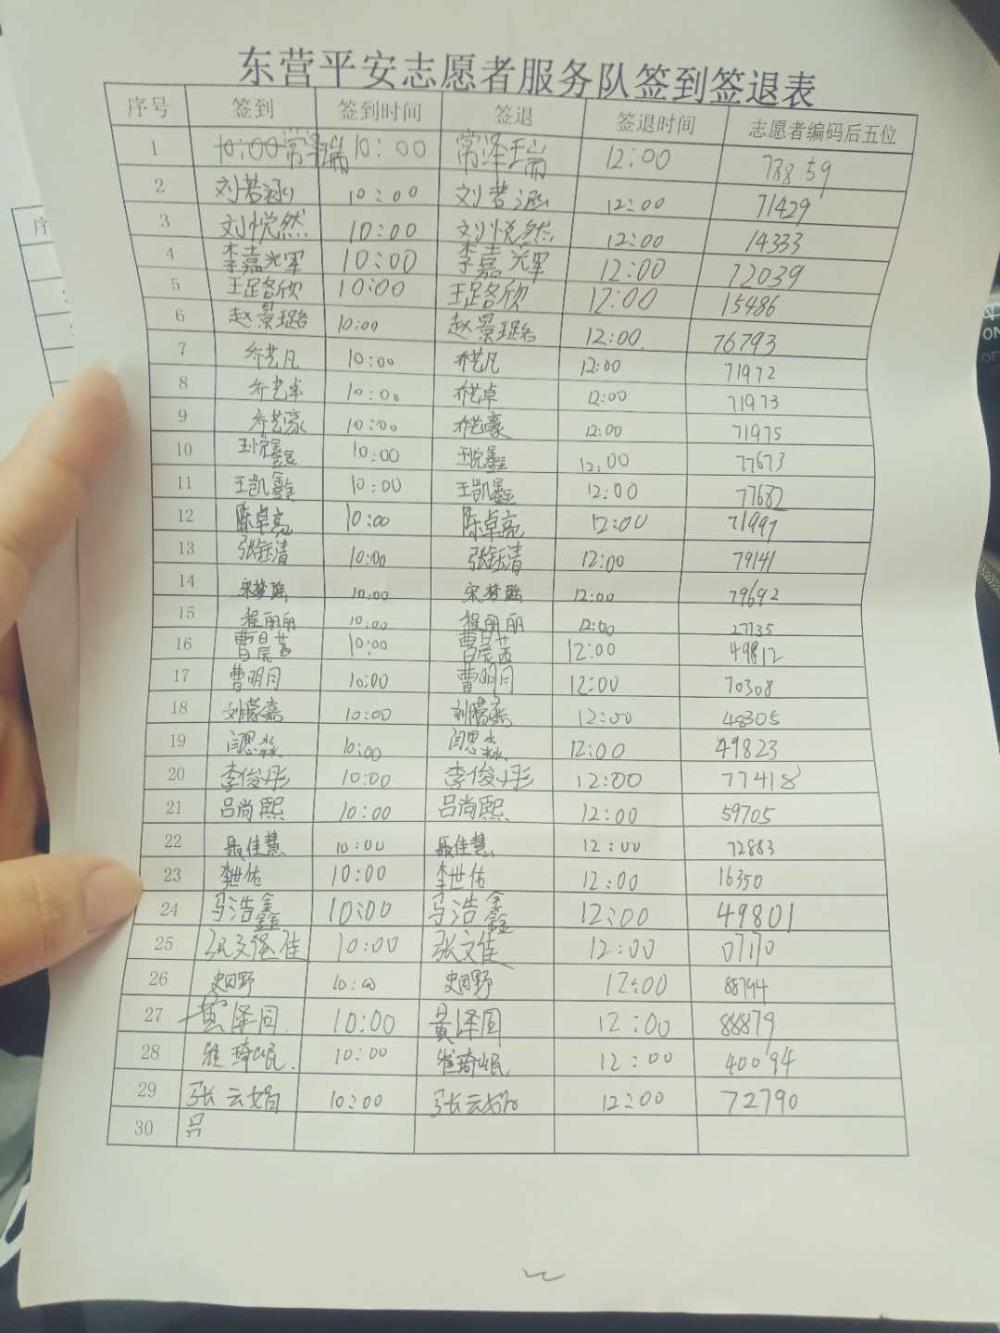 东营平安志愿者服务队签到签退表
序号 签到 签到时间 签退 签退时间 志愿者编码后五位
1 10:00 常泽瑞 10:00 常泽瑞 12:00 78859
2 刘若涵 10:00 刘若涵 12:00 71429
3 刘悦然 10:00 刘悦然 12:00 14333
4 李嘉 10:00 李嘉 12:00 72039
5 10:00 12:00 15486
6 赵景璐 10:00 赵景璐 12:00 76793
7 乔艺凡 10:00 乔艺凡 12:00 71972
8 乔艺卓 10:00 乔艺卓 12:00 71973
9 乔艺豪 10:00 乔艺豪 12:00 71975
10 王悦鑫 10:00 王悦鑫 12:00 77673
11 王凯鑫 10:00 王凯鑫 12:00 77682
12 陈卓亮 10:00 陈卓亮 12:00 71997
13 张钰清 10:00 张钰清 12:00 79141
14 宋梦瑶 10:00 宋梦瑶 12:00 79692
15 程丽丽 10:00 程丽丽 12:00 27735
16 10:00 12:00 49812
17 曹明月 10:00 曹明月 12:00 70308
18 10:00 12:00 48305
19 闫思淼 10:00 闫思淼 12:00 49823
20 李俊彤 10:00 李俊彤 12:00 77418
21 吕尚熙 10:00 吕尚熙 12:00 59705
22 聂佳慧 10:00 聂佳慧 12:00 72883
23 李世佑 10:00 李世佑 12:00 16350
24 马浩鑫 10:00 马浩鑫 12:00 49801
25 10:00 张文佳 12:00 07170
26 史田野 10:00 史田野 12:00 88794
27 黄泽同 10:00 黄泽同 12:00 88879
28 崔琦岷 10:00 崔琦岷 12:00 40094
29 张云娟 10:00 张云娟 12:00 72790
30 吕